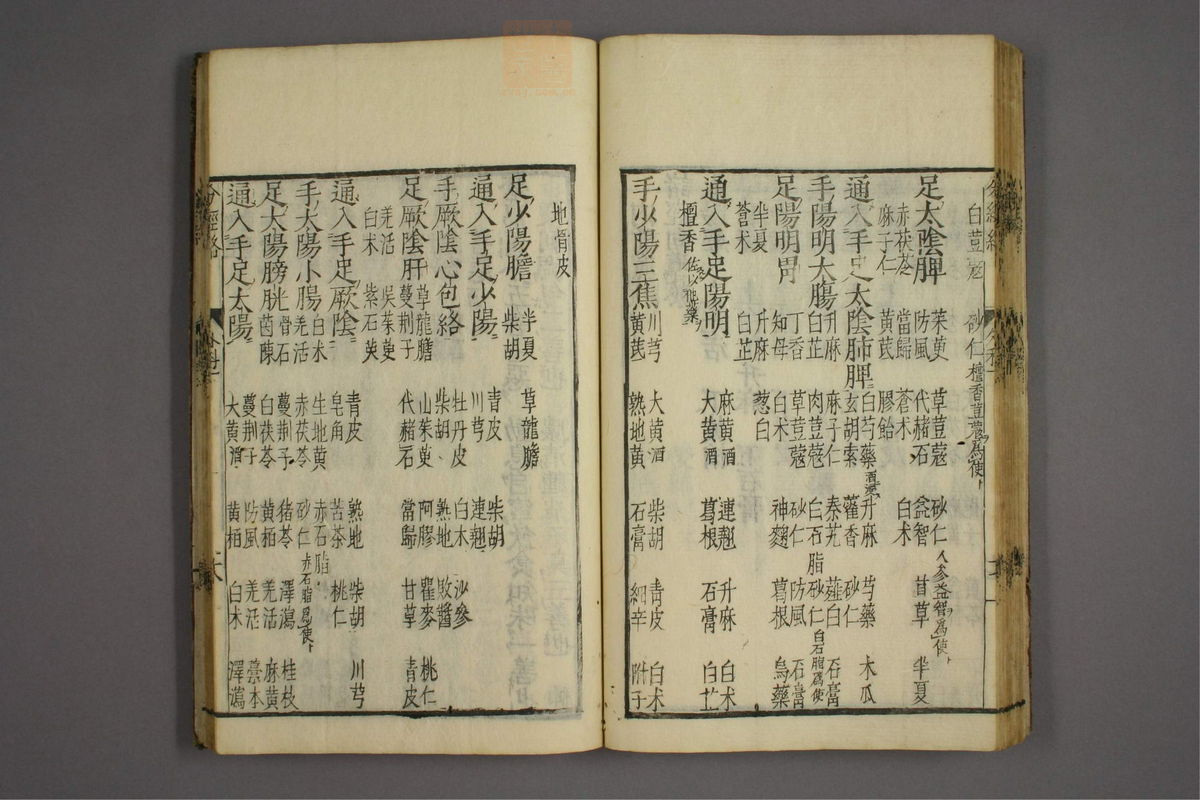 白荳蔲 砂仁 檀香荳蔲爲使
足太陰脾 茱萸 草荳蔲 砂仁 人參益智爲使
赤茯苓 防風 代赭石 益智 甘草 半夏
麻子仁 當歸 蒼术 白术
黃芪 膠飴
通入手足太陰肺脾 白芍藥酒浸 升麻 芍藥 木瓜
升麻 玄胡索 藿香 砂仁
手陽明大腸 白芷 麻子仁 秦艽 薤白 石膏
肉荳蔲 白石脂 砂仁 白石脂爲使
足陽明胃 丁香 草荳蔲 砂仁 防風 石膏
半夏 知母 白术 神麴 葛根 烏藥
蒼术 升麻 葱白
白芷
通入手足陽明 麻黃酒 連翹 升麻 白术
檀香 佐以他藥 大黃酒 葛根 石膏 白芷
手少陽三焦 川芎 大黃酒 柴胡 青皮 白术
黃芪 熟地黃 石膏 細辛 附子
地骨皮
足少陽膽 半夏 草龍膽
柴胡
通入手足少陽 青皮 柴胡
川芎 連翹
手厥陰心包絡 牡丹皮 白术 沙參
柴胡 熟地 敗醬
足厥陰肝 草龍膽 山茱萸 阿膠 瞿麥 桃仁
蔓荆子 代赭石 當歸 甘草 青皮
羌活 吳茱萸
白术 紫石英
通入手足厥陰 青皮 熟地 柴胡 川芎
皂角 苦茶 桃仁
手太陽小腸 白术 生地黃 赤石脂
羌活 赤茯苓 砂仁 赤石脂爲使
足太陽膀胱 滑石 蔓荆子 猪苓 澤瀉 桂枝
茵蔯 白茯苓 黃栢 羌活 麻黃
通入手足太陽 蔓荆子 防風 羌活 藁本
大黃酒 黃栢 白术 澤瀉
分經絡